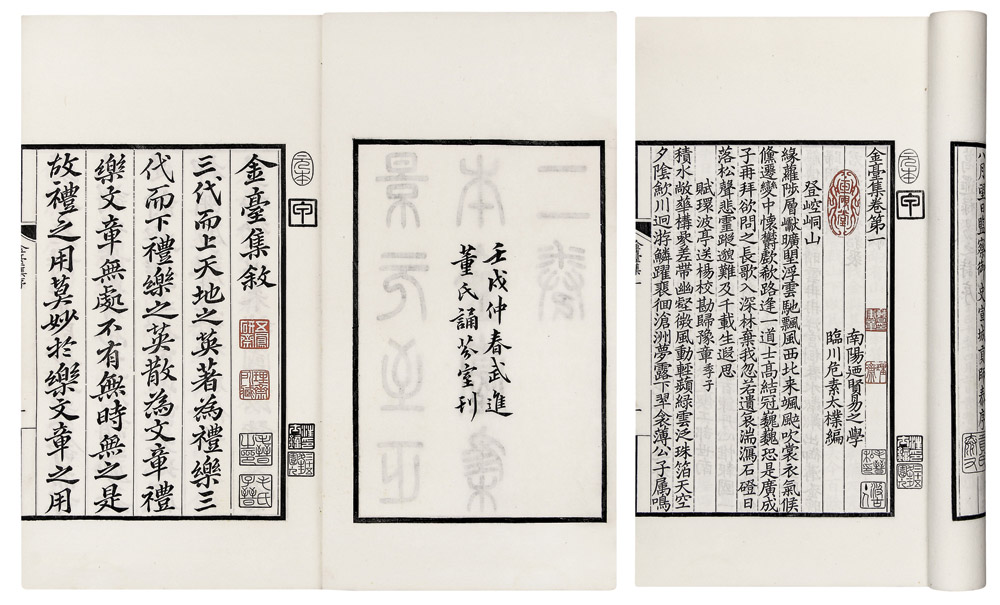 壬戌仲春武進
董氏誦芬室刊
元本
甲
金臺集敘
三代而上天地之英著為禮樂三
代而下禮樂之英散為文章禮
樂文章無處不有無時無之是
故禮之用莫妙於樂文章之用
元本
甲
金臺集卷第一
南陽迺賢易之學
臨川危素太樸編
登崆峒山
緣蘿陟層巘曠望浮雲馳飄風西北来颯颭吹裳衣氣候
儵遷變中懷欝歔欷路逢一道士髙結冠巍巍恐是廣成
子再拜欲問之長歌入深林棄我忽若遺哀湍瀉石磴日
落松聲悲靈蹤邈難及千載生遐思
賦環波亭送楊校勘歸豫章季子
積水敞華構衆差帶幽壑微風動輕蘋緑雲泛珠箔天空
夕陰歛川迥游鱗躍裵徊滄洲夢露下翆衾薄公子属鳴